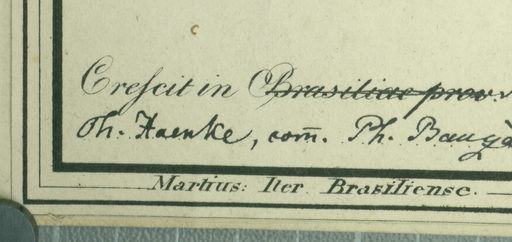 Crescit in Brasiliae prov.
Th. Haenke, com̄. Ph. Baug
Martius: Iter Brasiliense.